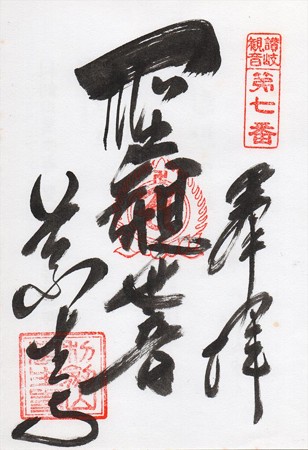 讃岐
観音
第七番
奉拝
聖観世音
萬生寺